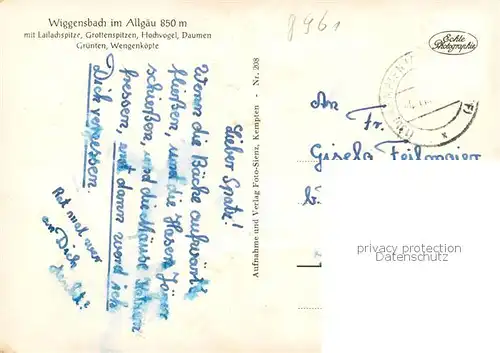 Wiggensbach im Allgäu 850 m
mit Lailachspitze, Grottenspitzen, Hochvogel, Daumen
Grünten, Wengenköpfe
8961
Echte
Photographie
Lieber Spatz!
Wenn die Bäche aufwärts
fließen, und die Hasen Jäger
schießen, und die Mäuse Katzen
fressen, erst dann werd ich
Dich vergessen.
Rat mal wer
an Dich
denkt?
Aufnahme und Verlag Foto-Stenz, Kempten - Nr. 208
An
Fr.
Gisela Feilmaier
privacy protection
Datenschutz